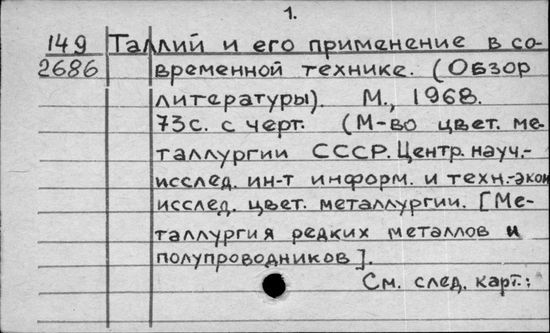 1.
149 Таллий и его применение в со-
2686 временной технике. (Обзор
литературы). М., 1968.
73с. с черт. (М-во цвет. ме-
таллургии СССР. Центр. науч.-
исслед. ин-т информ. и техн.-экон
исслед. цвет. металлургии. [Ме-
таллургия редких металлов и
полупроводников].
См. след. карт.: